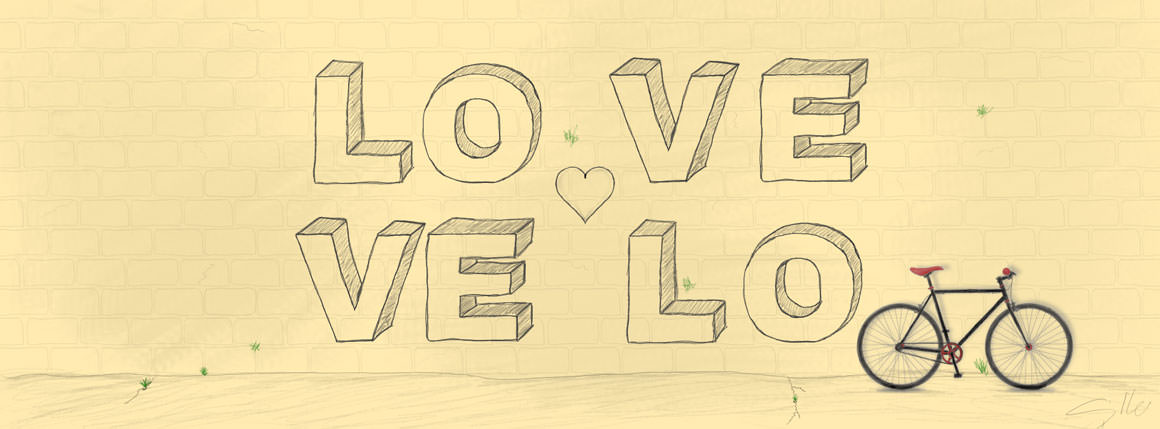 LO VE
VE LO